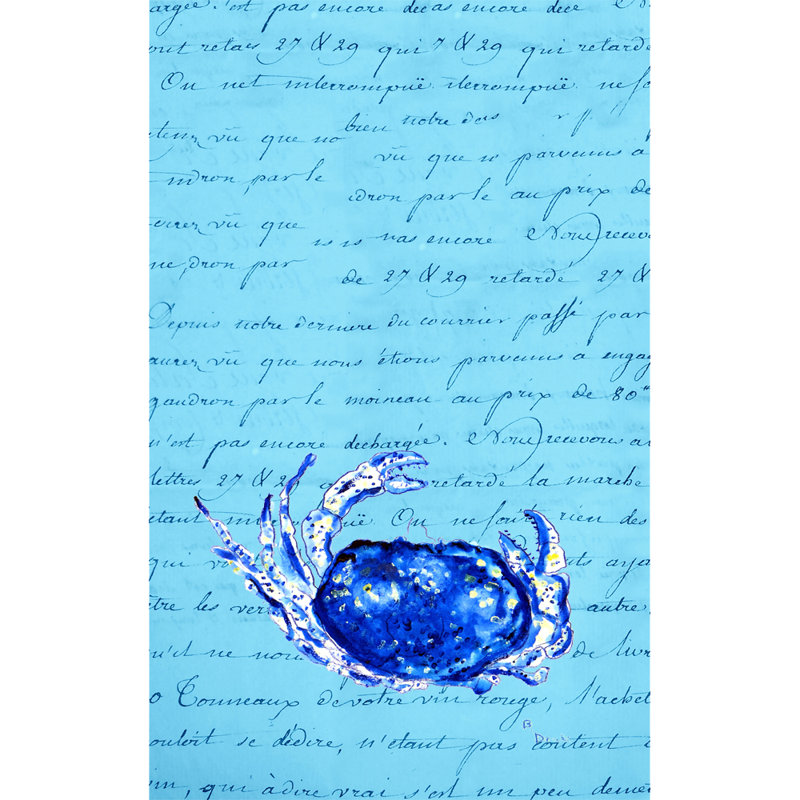 argée. n'est pas encore decas encore dece
ont retaes 27 & 29 qui 7 & 29 qui retardé
On net interrompuë. iterrompuë. ne
bien notre das
tenez vû que no
vû que n parvenus a
ndron, par le
dron par le au prix de
vû que
is is nas encore Nous recevo
ne, dron par
de 27 & 29 retardé 27 &
Depuis notre derniere du courrier passé par
aurez vû que nous étions parvenus a engag
gaudron par le moineau au prix de 80"
n'est pas encore dechargée. Nous recevons av
lettres 27 & 29 retardé la marche
etant uë. On ne rien des
qui v ts aya
tre les ver autre.
u'il ne nou de livr
0 Tonneaux de votre vin rouge, l'achet
ouloit se dédire, n'etant pas content
B
im, qui à dire vrai s'est un peu demé